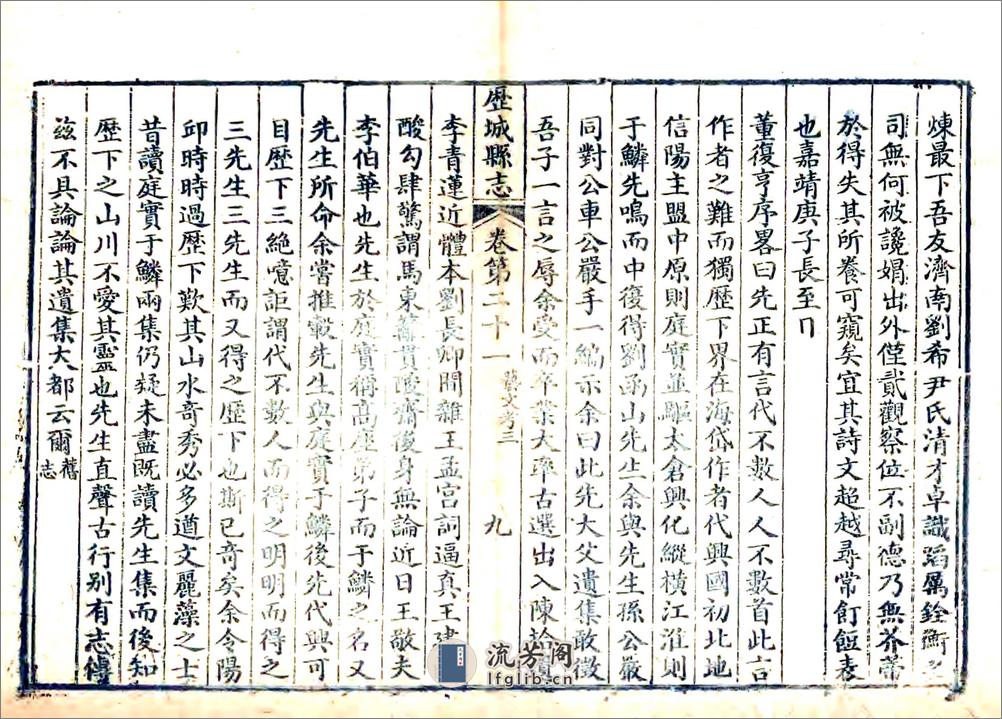 煉最下吾友濟南劉希尹氏清才卓識蹈厲銓衡之
司無何被讒媢出外僅貳觀察位不副德乃無芥蔕
於得失其所養可窺矣宜其詩文超越尋常飣餖表
也嘉靖庚子長至日
董復亨序畧曰先正有言代不數人人不數首此言
作者之難而獨歷下界在海岱作者代興國初北地
信陽主盟中原則庭實並驅太倉興化縱橫江淮則
于鱗先鳴而中復得劉函山先生余與先生孫公嚴
同對公車公嚴手一編示余曰此先大父遺集敢徵
吾子一言之辱余受而卒業大率古選出入陳拾遺
歷城縣志
卷第二十一
藝文考三
九
李青蓮近體本劉長卿間雜王孟宮詞逼真王建
酸勾肆驚謂馬東籬貫酸齋後身無論近日王敬夫
李伯華也先生於庭實稱高座弟子而于鱗之名又
先生所命余嘗推轂先生與庭實于鱗後先代興可
目歷下三絕噫詎謂代不數人而得之明明而得之
三先生三先生而又得之歷下也斯已奇矣余令陽
邱時時過歷下歎其山水奇秀必多遒文麗藻之士
昔讀庭實于鱗兩集仍疑未盡既讀先生集而後知
歷下之山川不愛其靈也先生直聲古行別有志傳
茲不具論論其遺集大都云爾 舊志
流芳阁
lfglib.cn